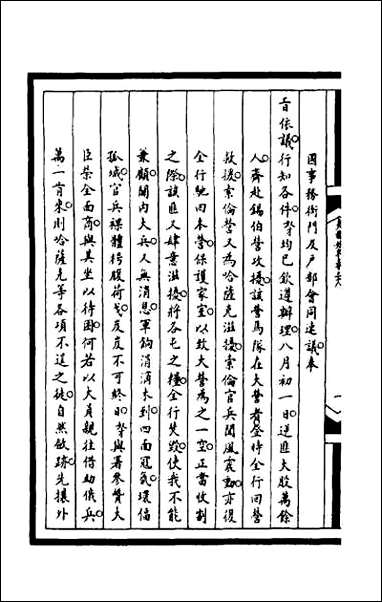 國事務衙門及戶部會同速議奏
旨依議行知各件 等均已欽遵辦理八月初一日逆匪大股萬餘
人齊赴錫伯營攻擾該營馬隊在大營者登時全行回營
救援索倫營又為哈薩克滋擾索倫官兵聞風震動亦復
全行馳回本營保護家室以致大營為之一空正當收割
之際該匪又肆意滋擾將各屯之糧全行焚燬使我不能
兼顧關內大兵又無消息軍餉涓滴未到四面寇氛環偪
孤城官兵裸體枵腹荷戈岌岌不可終日 等與署參贊大
臣榮全面商與其坐以待困何若以大員親往借助俄兵
萬一肯來則哈薩克等各項不逞之徒自然斂跡先攘外